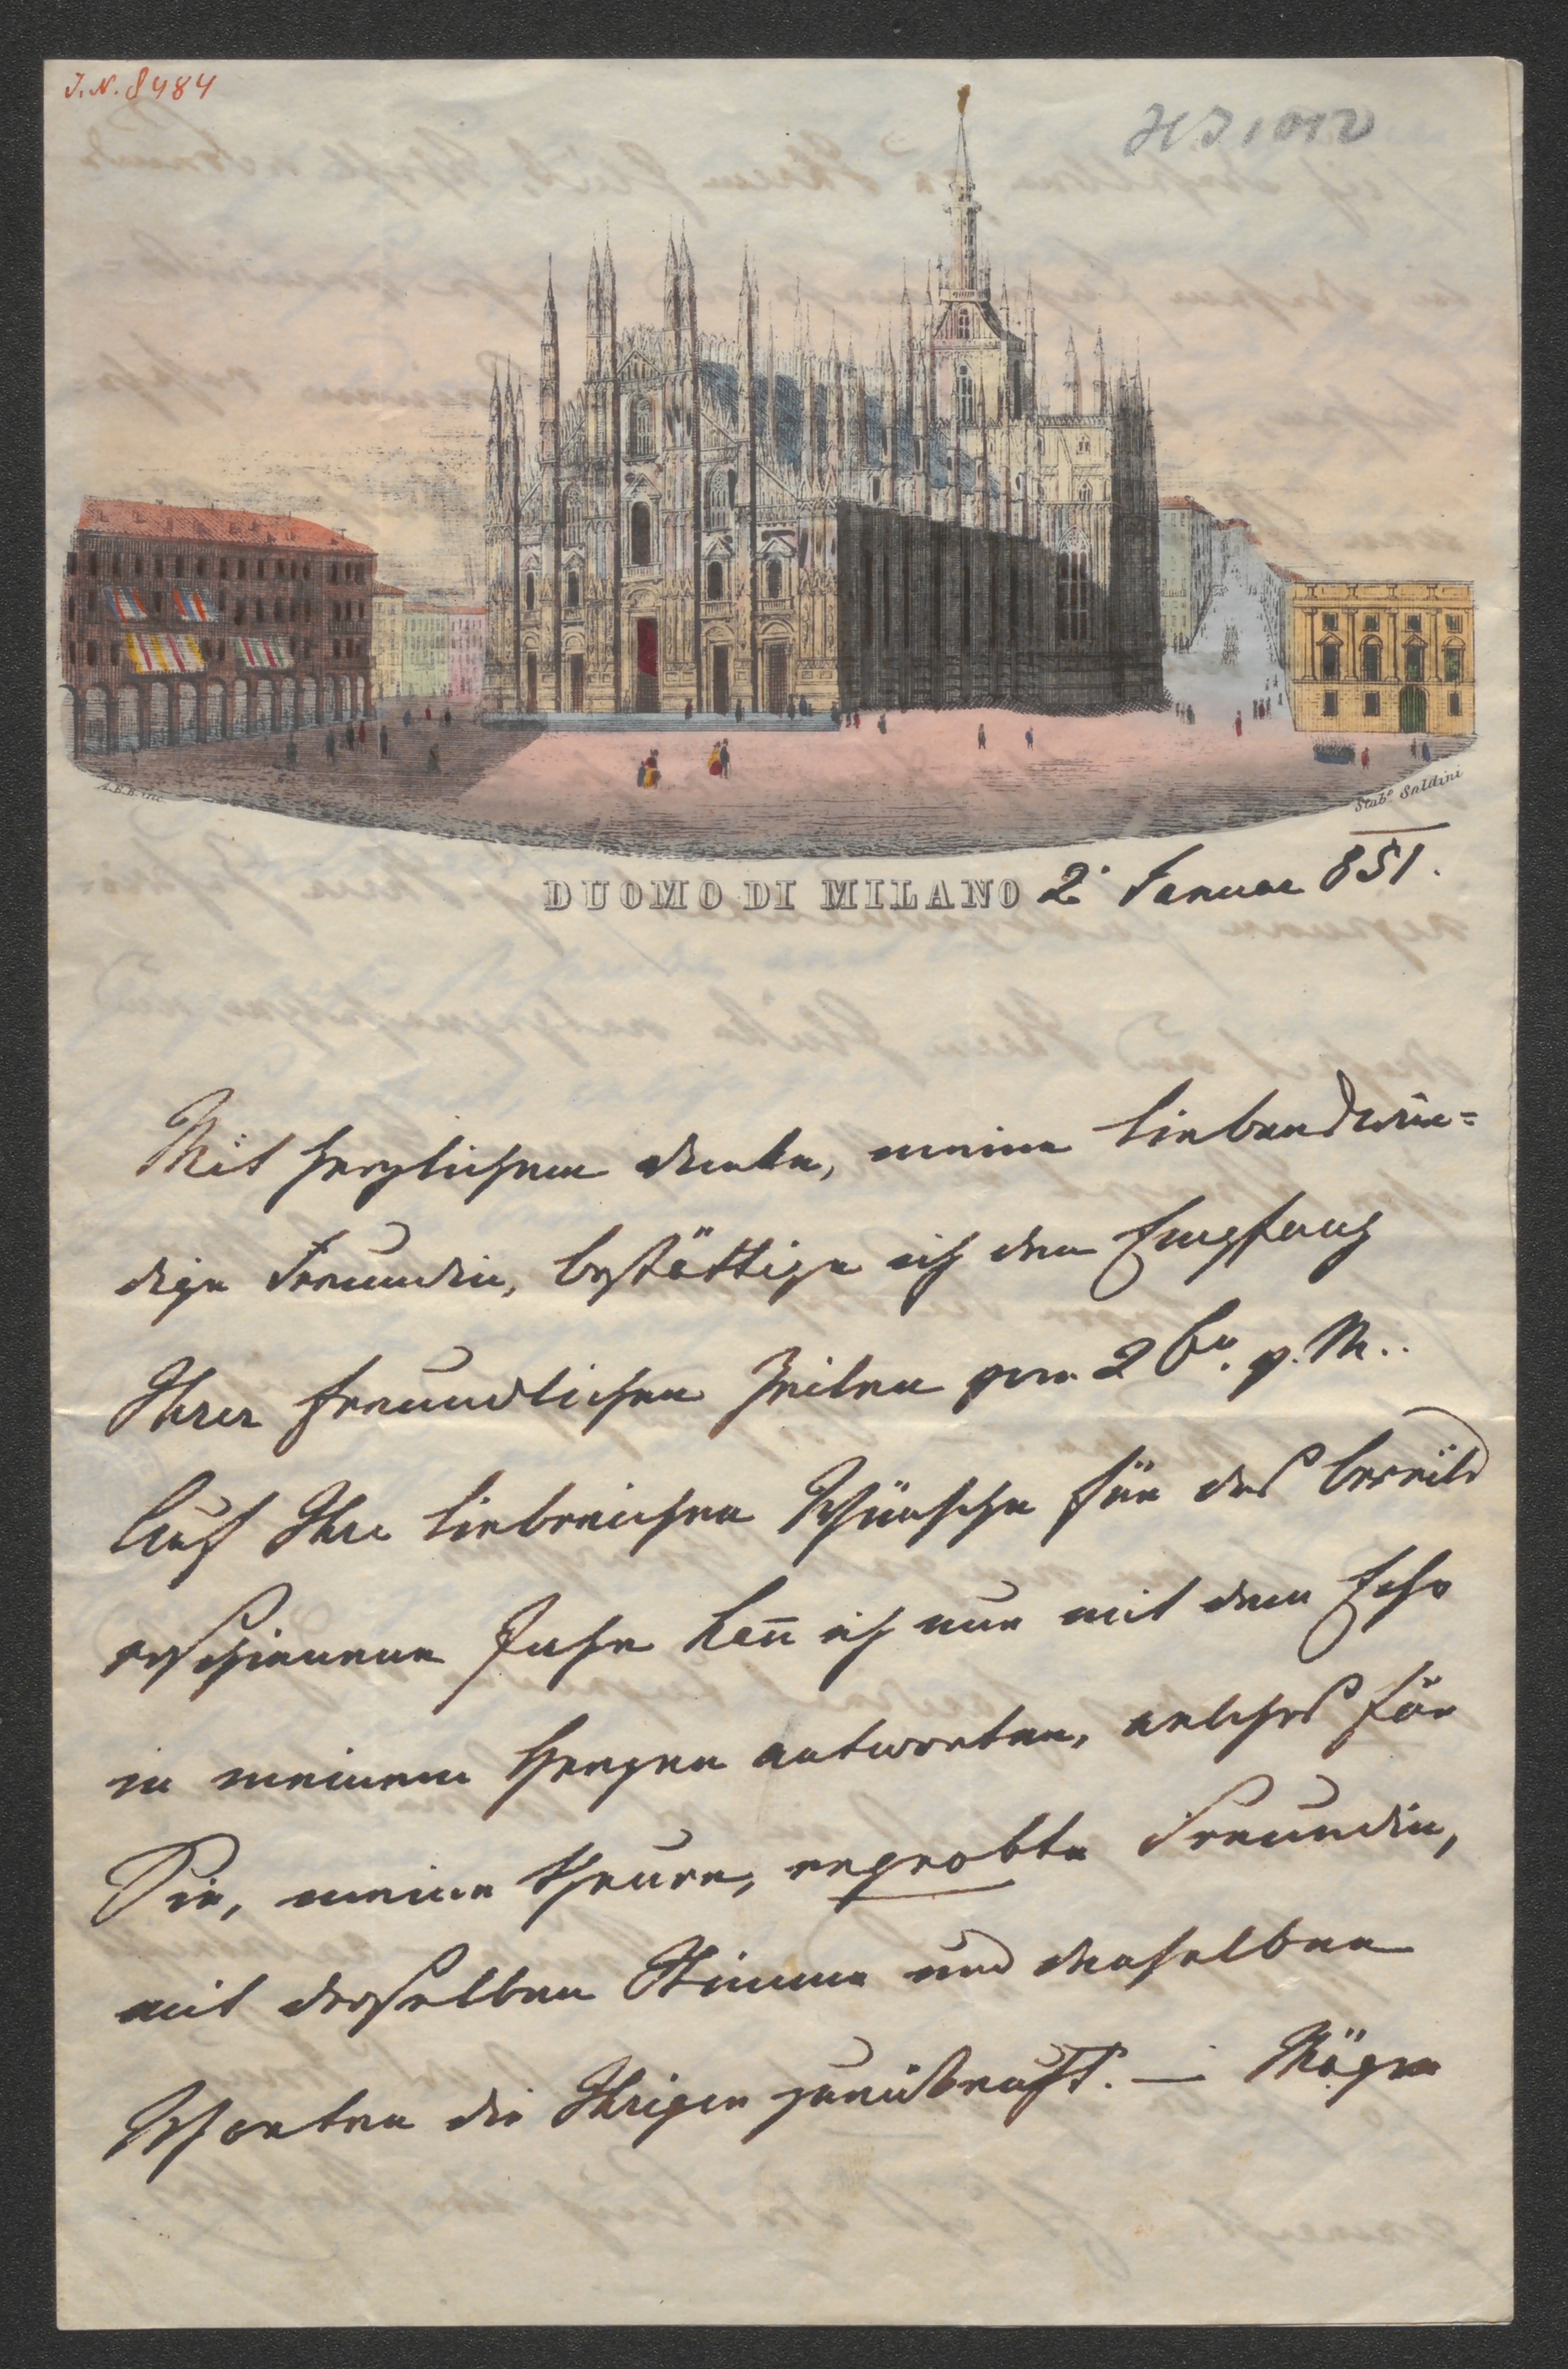 J.N. 8484
A.B.B. inc.
Stabo. Saldini
DUOMO DI MILANO 2. Januar 851.
Mit herzlichem Danke, meine liebenswür=
dige Freundin, bestättige ich den Empfang
Ihrer freundlichen Zeilen vom 26n. v. M..
Auf Ihre liebreichen Wünsche für das bereits
erschienene Jahr kan̄ ich nur mit dem Echo
in meinem Herzen antworten, welches für
Sie, meine theure, erprobte Freundin,
mit derselben Stimme und denselben
Worten die Ihrigen zurückruft. — Mögen